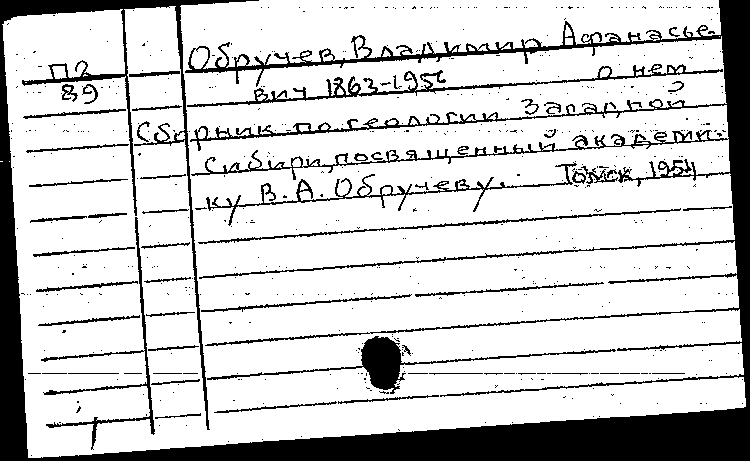 П2
89
Обручев, Владимир Афанасье-
вич 1863-1956 о нем
Сборник по геологии Западной
Сибири, посвященный академи-
ку В. А. Обручеву. Томск, 1954.